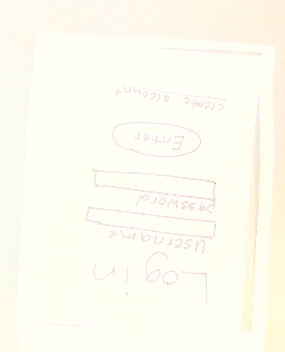 Log in
username
password
Enter
create account